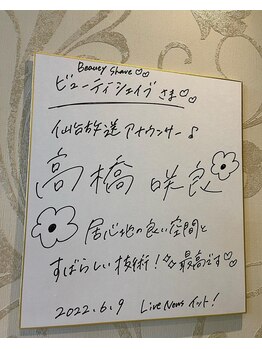 Beauty Shave♡♡
ビューティシェイブさま♡♡
仙台放送アナウンサー♪
高橋咲良
居心地の良い空間と
すばらしい技術!最高です♡♡
2022.6.9 Live News イット!